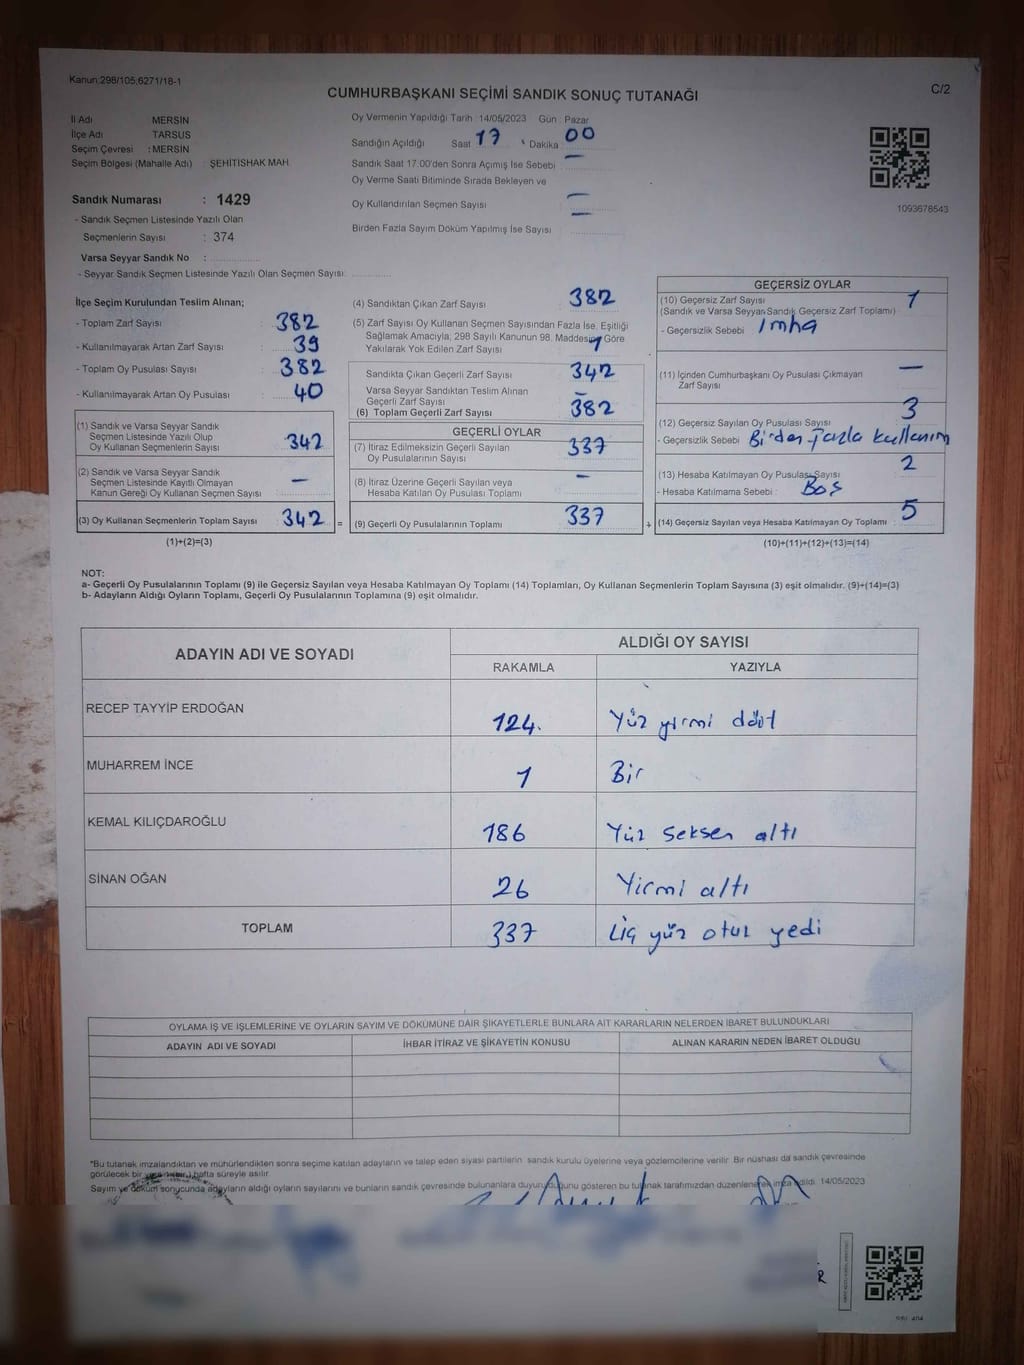 Kanun;298/105;6271/18-1
C/2
CUMHURBAŞKANI SEÇİMİ SANDIK SONUÇ TUTANAĞI
İl Adı MERSİN
İlçe Adı TARSUS
Seçim Çevresi : MERSİN
Seçim Bölgesi (Mahalle Adı) : ŞEHİTİSHAK MAH.
Sandık Numarası : 1429
- Sandık Seçmen Listesinde Yazılı Olan
Seçmenlerin Sayısı : 374
Varsa Seyyar Sandık No :
- Seyyar Sandık Seçmen Listesinde Yazılı Olan Seçmen Sayısı:
Oy Vermenin Yapıldığı Tarih 14/05/2023 Gün : Pazar
Sandığın Açıldığı Saat 17 Dakika 00
Sandık Saat 17:00'den Sonra Açımış İse Sebebi –
Oy Verme Saati Bitiminde Sırada Bekleyen ve
Oy Kullandırılan Seçmen Sayısı –
Birden Fazla Sayım Döküm Yapılmış İse Sayısı –
1093678543
İlçe Seçim Kurulundan Teslim Alınan;
- Toplam Zarf Sayısı : 382
- Kullanılmayarak Artan Zarf Sayısı : 39
- Toplam Oy Pusulası Sayısı : 382
- Kullanılmayarak Artan Oy Pusulası : 40
(1) Sandık ve Varsa Seyyar Sandık
Seçmen Listesinde Yazılı Olup
Oy Kullanan Seçmenlerin Sayısı 342
(2) Sandık ve Varsa Seyyar Sandık
Seçmen Listesinde Kayıtlı Olmayan
Kanun Gereği Oy Kullanan Seçmen Sayısı –
(3) Oy Kullanan Seçmenlerin Toplam Sayısı 342 =
(1)+(2)=(3)
(4) Sandıktan Çıkan Zarf Sayısı 382
(5) Zarf Sayısı Oy Kullanan Seçmen Sayısından Fazla İse, Eşitliği
Sağlamak Amacıyla, 298 Sayılı Kanunun 98. Maddesine Göre
Yakılarak Yok Edilen Zarf Sayısı 1
Sandıkta Çıkan Geçerli Zarf Sayısı 342
Varsa Seyyar Sandıktan Teslim Alınan
Geçerli Zarf Sayısı –
(6) Toplam Geçerli Zarf Sayısı 382
GEÇERLİ OYLAR
(7) İtiraz Edilmeksizin Geçerli Sayılan
Oy Pusulalarının Sayısı 337
(8) İtiraz Üzerine Geçerli Sayılan veya
Hesaba Katılan Oy Pusulası Toplamı –
(9) Geçerli Oy Pusulalarının Toplamı 337 +
GEÇERSİZ OYLAR
(10) Geçersiz Zarf Sayısı 1
(Sandık ve Varsa Seyyar Sandık Geçersiz Zarf Toplamı)
- Geçersizlik Sebebi : İmha
(11) İçinden Cumhurbaşkanı Oy Pusulası Çıkmayan
Zarf Sayısı —
(12) Geçersiz Sayılan Oy Pusulası Sayısı 3
- Geçersizlik Sebebi Birden fazla kullanım
(13) Hesaba Katılmayan Oy Pusulası Sayısı 2
- Hesaba Katılmama Sebebi : Boş
(14) Geçersiz Sayılan veya Hesaba Katılmayan Oy Toplamı 5
(10)+(11)+(12)+(13)=(14)
NOT:
a- Geçerli Oy Pusulalarının Toplamı (9) ile Geçersiz Sayılan veya Hesaba Katılmayan Oy Toplamı (14) Toplamları, Oy Kullanan Seçmenlerin Toplam Sayısına (3) eşit olmalıdır. (9)+(14)=(3)
b- Adayların Aldığı Oyların Toplamı, Geçerli Oy Pusulalarının Toplamına (9) eşit olmalıdır.
ADAYIN ADI VE SOYADI
ALDIĞI OY SAYISI
RAKAMLA YAZIYLA
RECEP TAYYİP ERDOĞAN 124. Yüz yirmi dört
MUHARREM İNCE 1 Bir
KEMAL KILIÇDAROĞLU 186 Yüz seksen altı
SİNAN OĞAN 26 Yirmi altı
TOPLAM 337 Üç yüz otuz yedi
OYLAMA İŞ VE İŞLEMLERİNE VE OYLARIN SAYIM VE DÖKÜMÜNE DAİR ŞİKAYETLERLE BUNLARA AİT KARARLARIN NELERDEN İBARET BULUNDUKLARI
ADAYIN ADI VE SOYADI İHBAR İTİRAZ VE ŞİKAYETİN KONUSU ALINAN KARARIN NEDEN İBARET OLDUĞU
*Bu tutanak imzalandıktan ve mühürlendikten sonra seçime katılan adayların ve talep eden siyasi partilerin sandık kurulu üyelerine veya gözlemcilerine verilir. Bir nüshası da sandık çevresinde
görülecek bir hafta süreyle asılır.
Sayım ve döküm sonucunda adayların aldığı oyların sayılarını ve bunların sandık çevresinde bulunanlara duyurulduğunu gösteren bu tutanak tarafımızdan düzenlenerek imza edildi. 14/05/2023